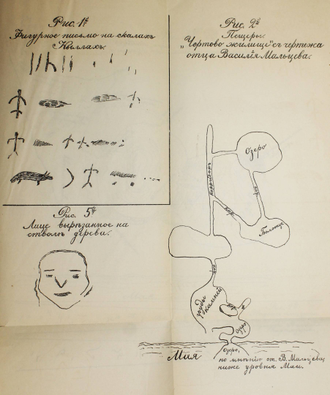 Рис. 1й
Фигурное письмо на скалахъ
Кыллахъ.
Рис. 5й
Лице вырѣзанное на
стволѣ дерева.
Рис. 2й
Пещеры
"Чертово жилище" съ чертежа
отца Василія Мальцева.
Озеро
Озеро
Озеро,
по мнѣнію от. В. Мальцева
ниже уровня Маи.
Мия